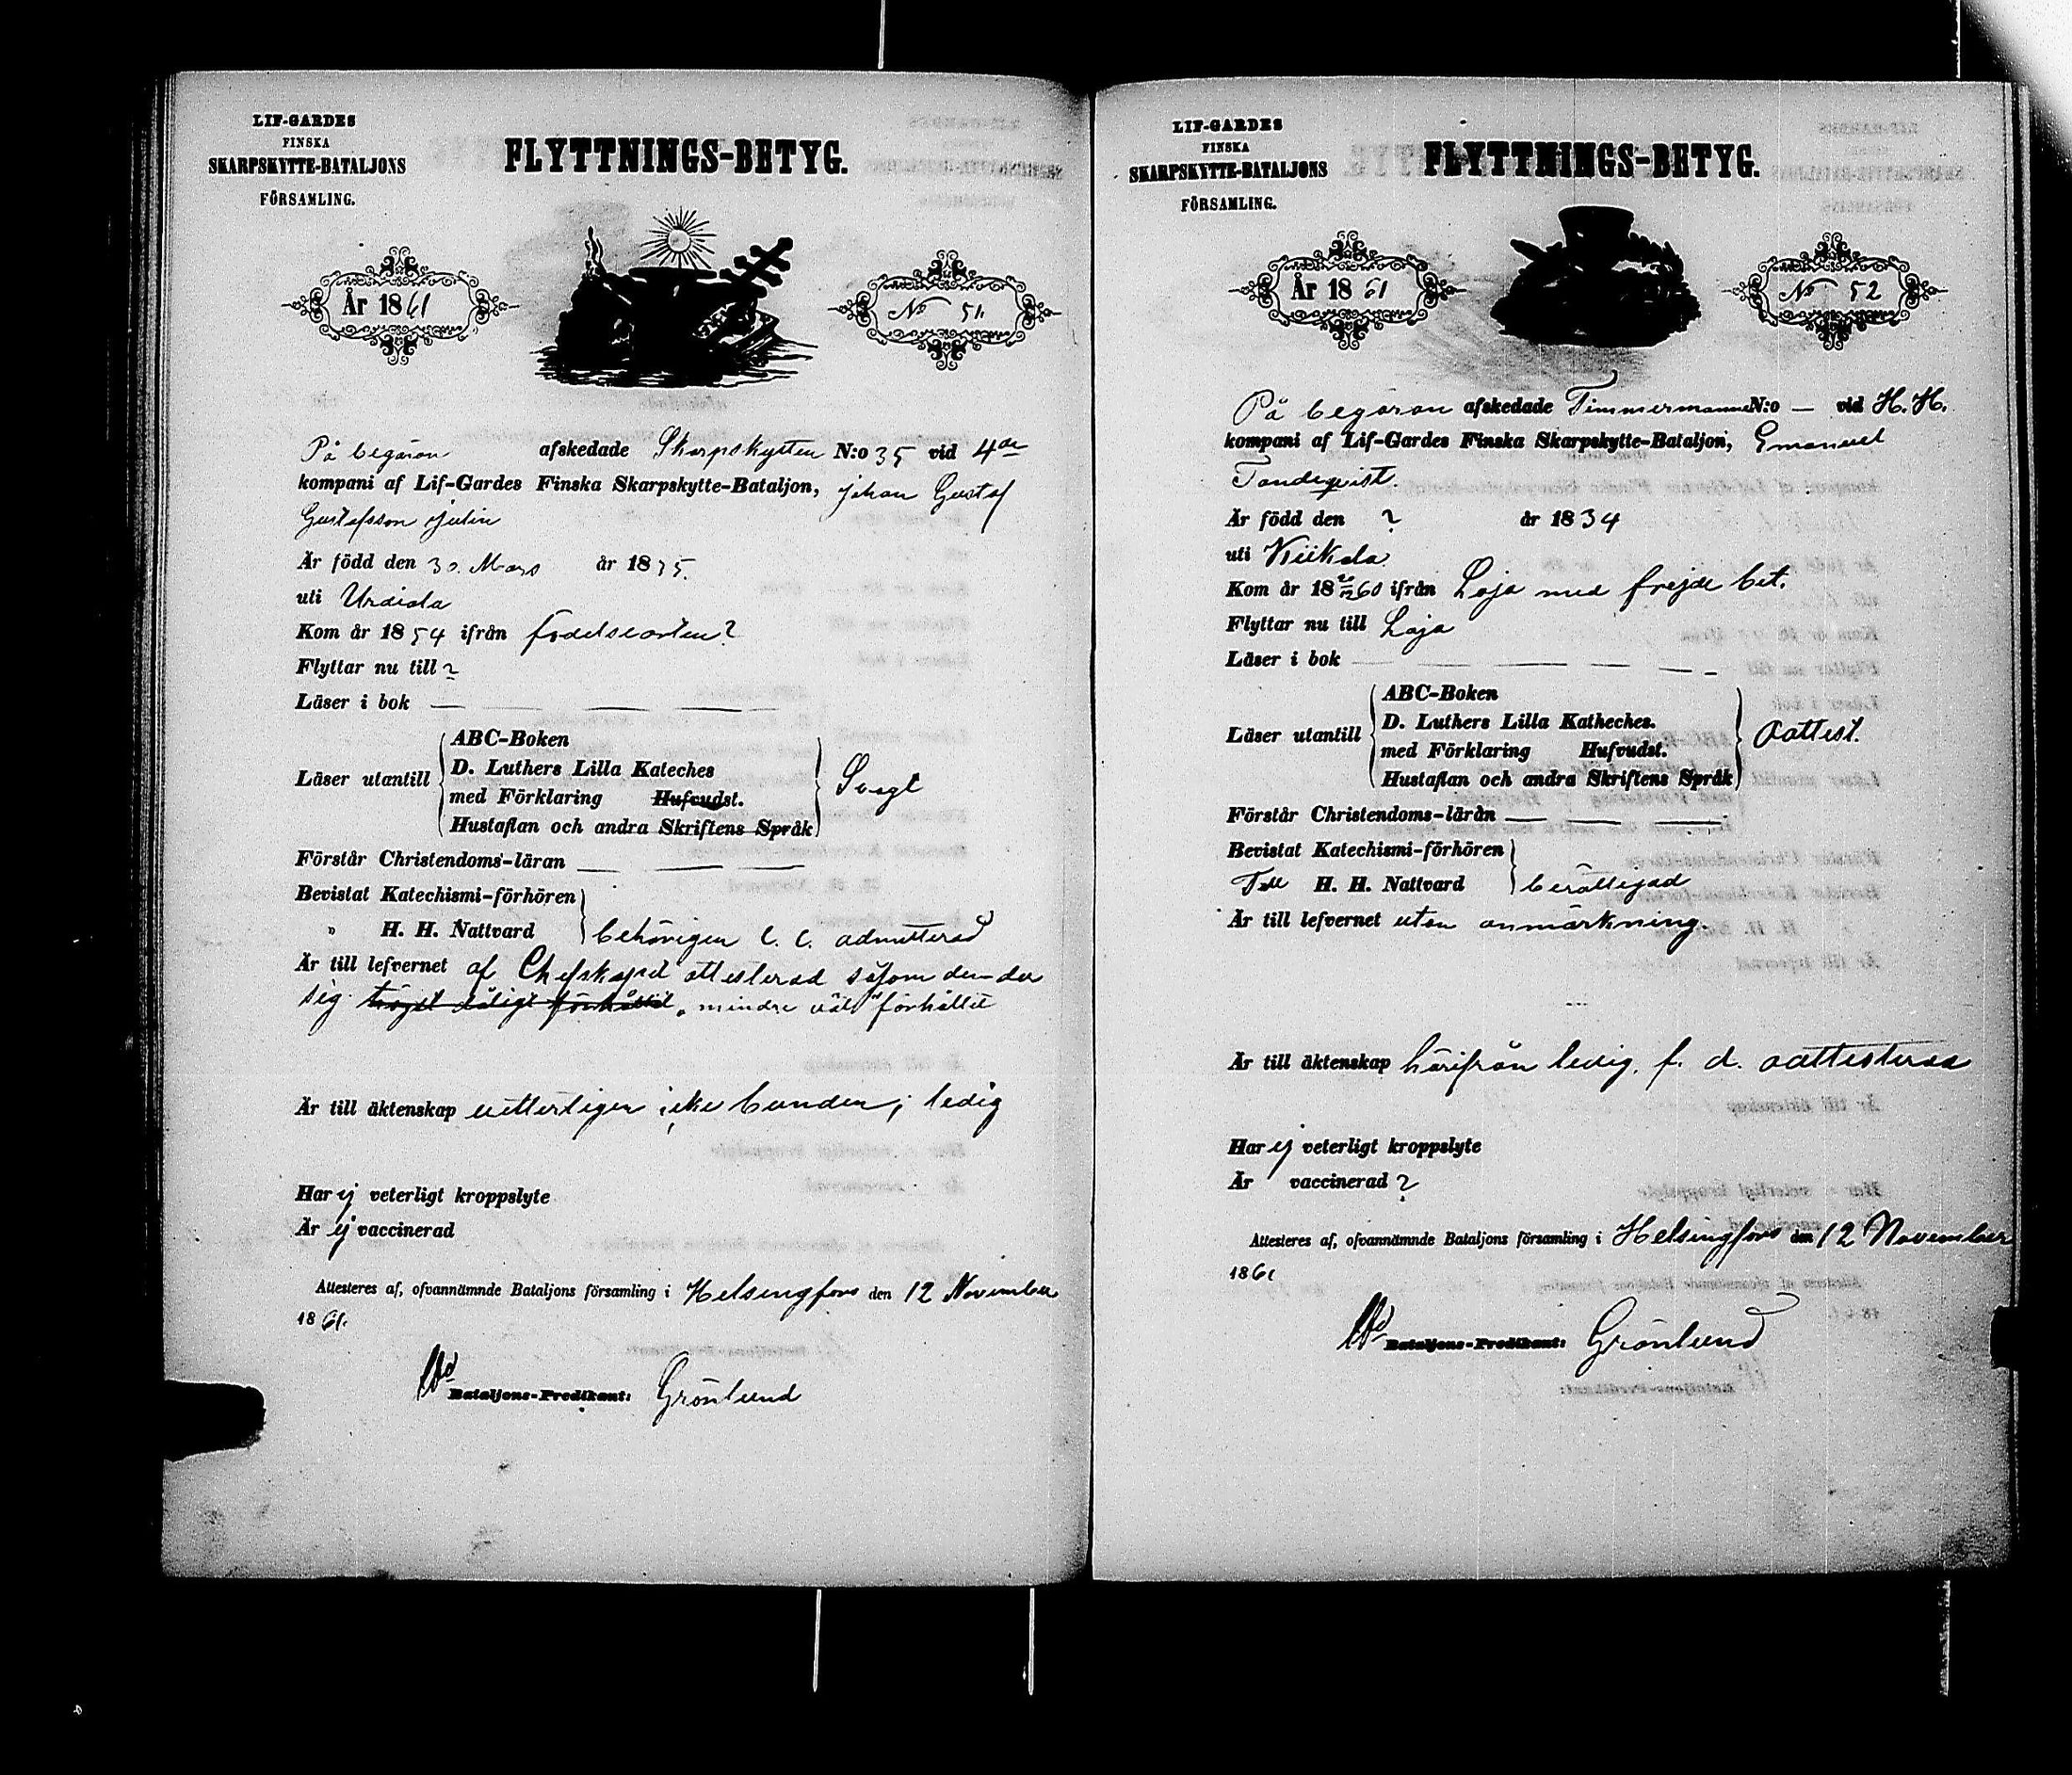 LIF-GARDES
FINSKA
SKARPSKYTTE-BATALJONS
FÖRSAMLING.
FLYTTNINGS-BETYG.
År 1861
No 51.
På begäran afskedade Skarpskytten N:o 35 vid 4de
kompani af Lif-Gardes Finska Skarpskytte-Bataljon, Johan Gustaf
Gustafsson Julin
Är född den 30. Mars år 1835.
uti Urdiala
Kom år 1854 ifrån födelseorten?
Flyttar nu till ?
Läser i bok — — — — —
ABC-Boken
D. Luthers Lilla Kateches
Läser utantill
med Förklaring Hufvudst.
Svagt
Hustaflan och andra Skriftens Språk
Förstår Christendoms-läran — — —
Bevistat Katechismi-förhören
" H. H. Nattvard behörigen admitterad
Är till lefvernet af Chefskapet attesterad såsom den der
sig „mindre väl" förhållit
Är till äktenskap vetterligen icke bunden; ledig
Har ej veterligt kroppslyte
Är ej vaccinerad
Attesteres af, ofvannämnde Bataljons församling i Helsingfors den 12 November
1861.
Bataljons-Predikant: Grönlund
LIF-GARDES
FINSKA
SKARPSKYTTE-BATALJONS
FÖRSAMLING.
FLYTTNINGS-BETYG.
År 1861
No 52
På begäran afskedade Timmermannen N:o — vid H. H.
kompani af Lif-Gardes Finska Skarpskytte-Bataljon, Emanuel
Tandeqvist
Är född den ? år 1834
uti Kiikala
Kom år 1860 ifrån Lojo med frejde bet.
Flyttar nu till Lojo
Läser i bok — — — — —
ABC-Boken
D. Luthers Lilla Katheches.
Läser utantill
med Förklaring Hufvudst.
Oattest.
Hustaflan och andra Skriftens Språk
Förstår Christendoms-läran — — —
Bevistat Katechismi-förhören
Till H. H. Nattvard berättigad
Är till lefvernet utan anmärkning.
Är till äktenskap härifrån ledig, f. d. oattesteras
Har ej veterligt kroppslyte
Är vaccinerad ?
Attesteres af, ofvannämnde Bataljons församling i Helsingfors den 12 November
1861
Bataljons-Predikant: Grönlund